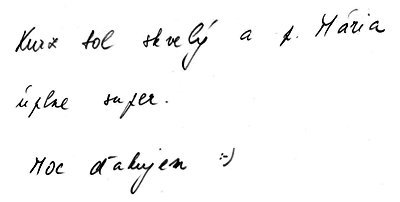 Kurz bol skvelý a p. Mária
úplne super.
Moc ďakujem :-)